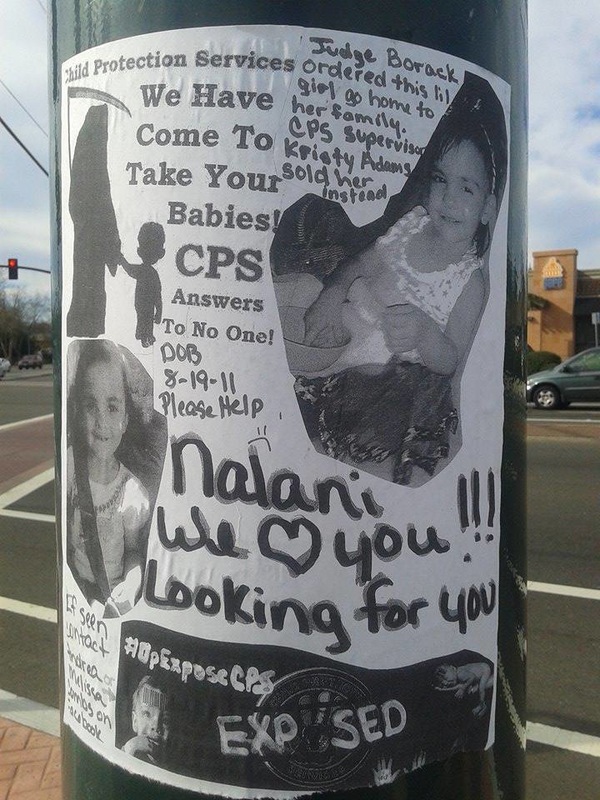 Child Protection Services
We Have
Come To
Take Your
Babies!
CPS
Answers
To No One!
Judge Borack
ordered this lil
girl go home to
her family.
CPS supervisor
Kristy Adams
sold her
instead
DOB
8-19-11
Please Help
Nalani
We ♡ you !!!
Looking for you
If seen
contact
Andrea or
Melissa
on
facebook
#OpExposeCPS
EXPOSED